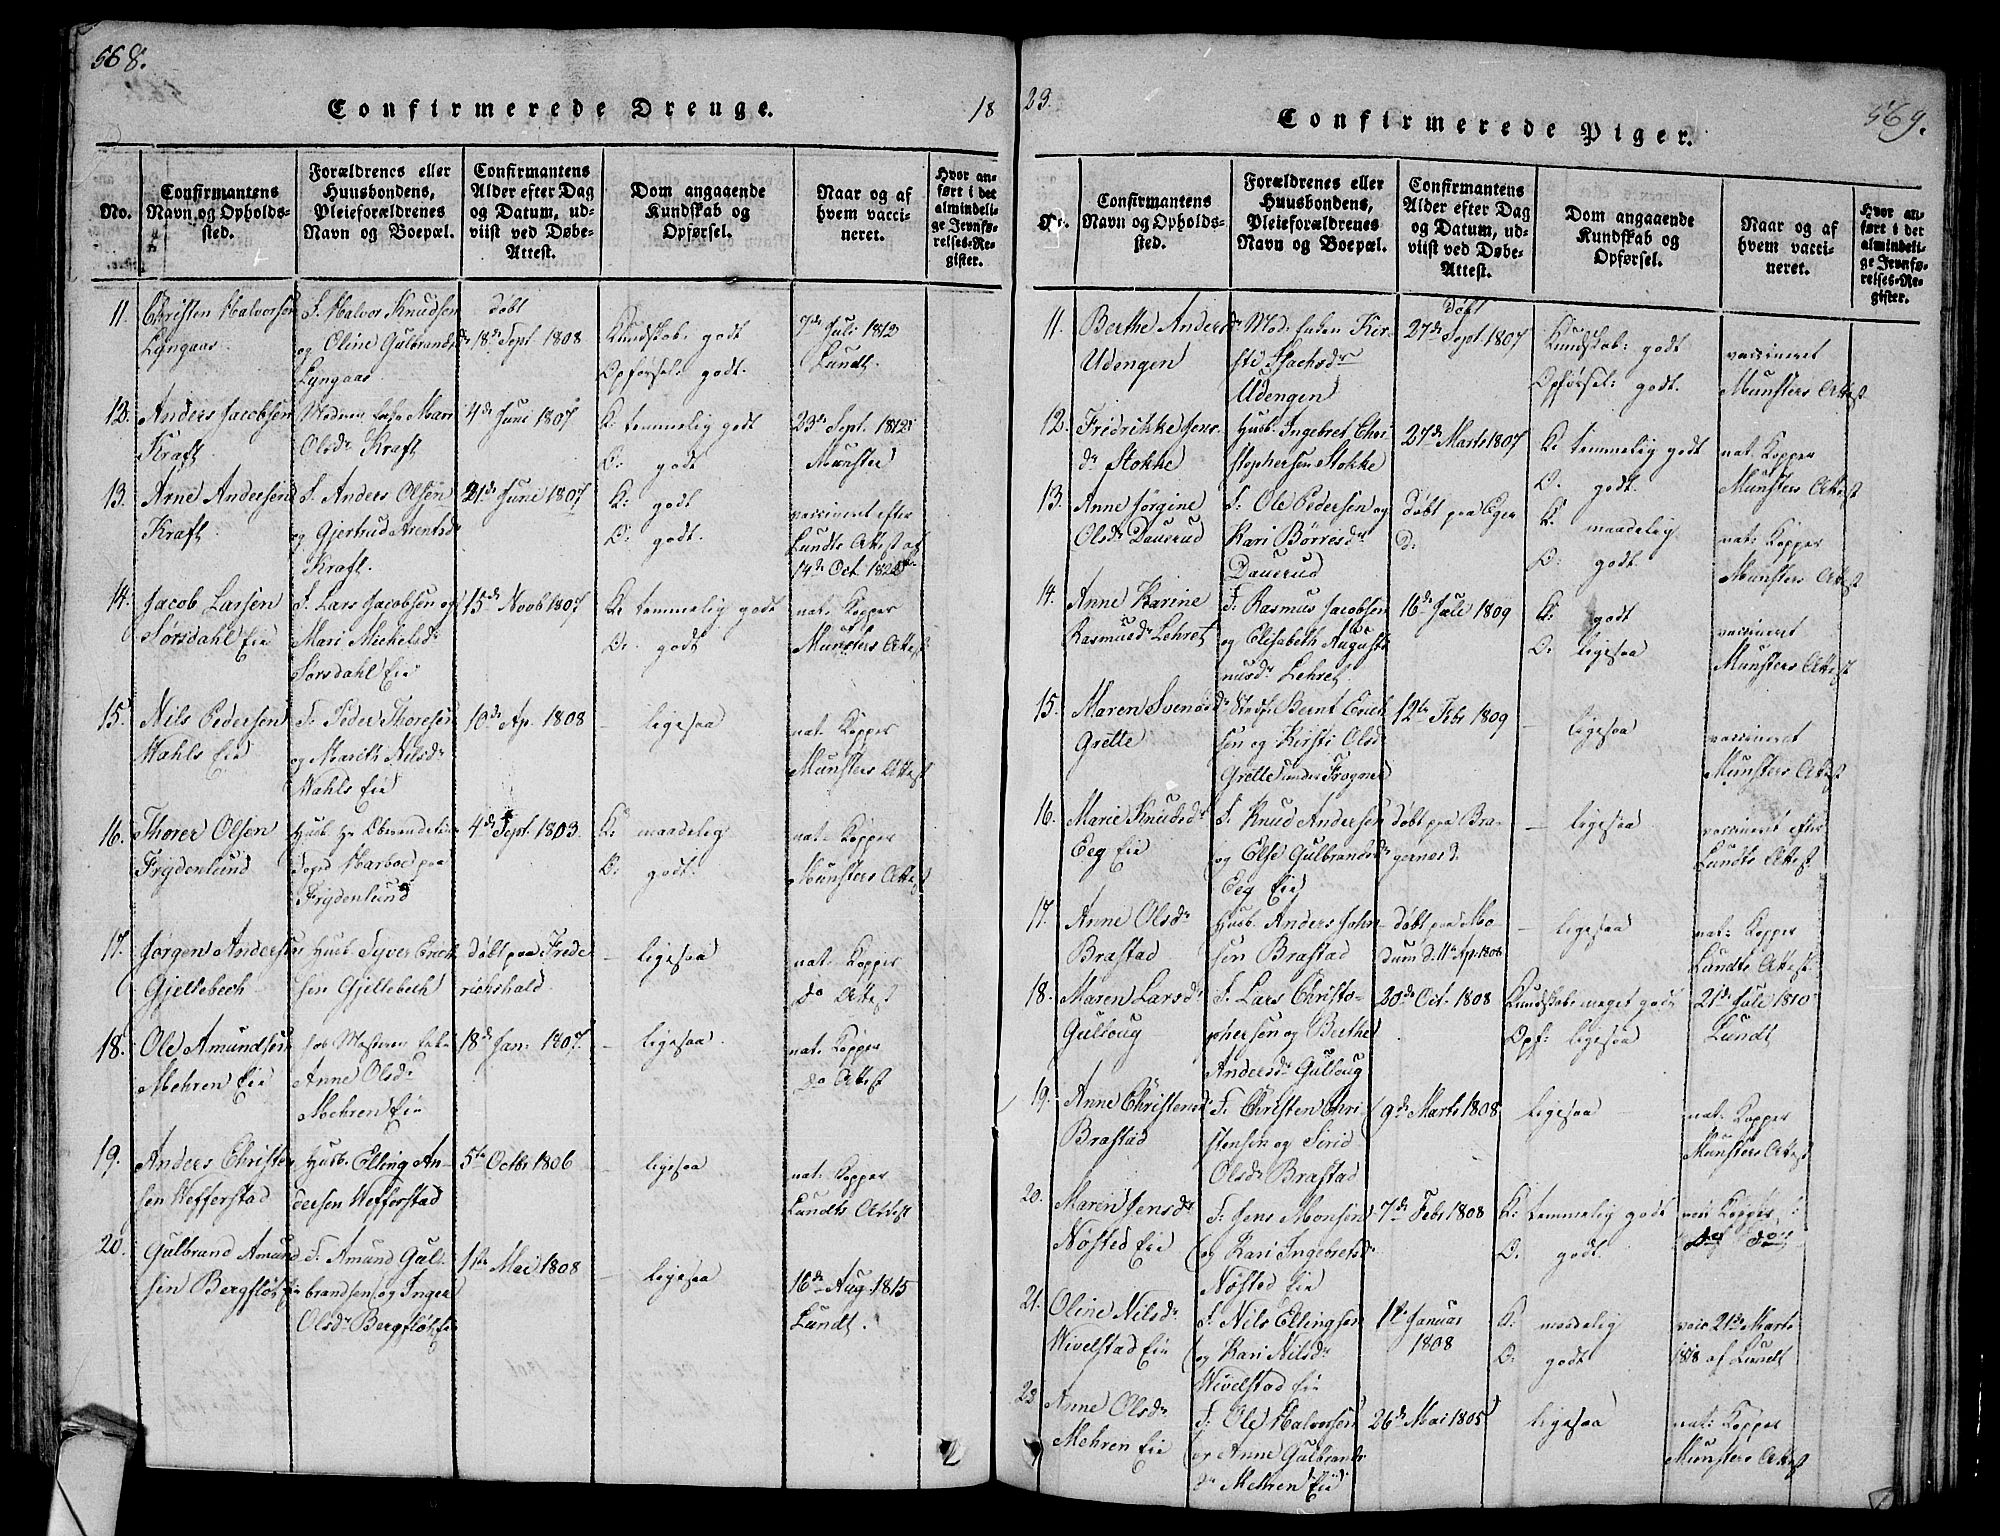 568.
Confirmerede Drenge.
18
No.
Confirmantens
Navn og Opholds-
sted.
Forældrenes eller
Huusbondens,
Pleieforældrenes
Navn og Boepæl.
Confirmantens
Alder efter Dag
og Datum, ud-
viist ved Døbe-
Attest.
Dom angaaende
Kundskab og
Opførsel.
Naar og af
hvem vacci-
neret.
Hvor an-
ført i det
almindeli-
ge Jevnfø-
relses-Re-
gister.
11.
Christen Halvorsen
Lyngaas
F. Halvor Knudsen
og Oline Gulbrandsdr
Lyngaas
døbt
18de Sept 1808
Kundskab: godt
Opførsel: godt.
7de Juli 1812
Lundt.
12.
Anders Jacobsen
Kraft
Moderen Enke Mari
Olsdr Kraft
4de Juni 1807
K: temmelig godt
O: godt
23de Sept. 1812
Munster
13.
Arne Andersen
Kraft
F. Anders Olsen
og Gjertrud Arentsd
Kraft.
21de Juni 1807
K: godt
O: godt.
vaccineret efter
Lundts Attest af
14de Oct. 1822
14.
Jacob Larsen
Sørsdahl Eie
F. Lars Jacobsen og
Mari Michelsdr
Sørsdahl Eie
15de Novb 1807
K: temmelig godt
O: godt
nat: Kopper
Munsters Attest
15.
Nils Pedersen
Wahls Eie
F. Peder Thoresen
og Marith Nilsdr
Wahls Eie
10de Ap. 1808
- ligesaa
nat: Kopper
Munsters Attest
16.
Thorer Olsen
Frydenlund
Husb Hr Oberauditeur
Foged Harboe paa
Frydenlund
4de Sept. 1803
K: maadelig
O: godt.
nat: Kopper
Munsters Attest
17.
Jørgen Andersen
Gjellebech
Husb Syver Erich
sen Gjellebech
døbt paa Frede
richshald.
- ligesaa
nat: Kopper
do Attest
18.
Ole Amundsen
Mehren Eie
Anne Olsdr
Mehren Eie
18de Jan. 1807.
- ligesaa
nat: Kopper
do Attest
19.
Anders Christen
sen Wefferstad
Husb. Elling An-
dersen Wefferstad
5te Octbr 1806
- ligesaa
nat: Kopper
Lundts Attest
20.
Gulbrand Amund
sen Bergfløt Eie
F. Amund Gul-
brandsen og Inger
Olsdr Bergfløt Eie
1ste Mai 1808
- ligesaa
16de Aug. 1815
Lundt.
23.
Confirmerede Piger.
569.
No.
Confirmantens
Navn og Opholds-
sted.
Forældrenes eller
Huusbondens,
Pleieforældrenes
Navn og Boepæl.
Confirmantens
Alder efter Dag
og Datum, ud-
viist ved Døbe-
Attest.
Dom angaaende
Kundskab og
Opførsel.
Naar og af
hvem vacci-
neret.
Hvor an-
ført i det
almindeli-
ge Jevnfø-
relses-Re-
gister.
11.
Berthe Andersdr
Udengen
Mod: Enken Kir-
sti Isachsdr
Udengen
Døbt
27de Sept. 1807
Kundskab: godt
Opførsel: godt.
vaccineret
Munsters Attest
12.
Fridrikke Jens-
dr Stokke
Husb. Ingebret Chri
stophersen Stokke
27de Marts 1807
K: temmelig godt
O: godt.
nat: Kopper
Munsters Attest
13.
Anne Jørgine
Olsdr Dauerud
F. Ole Pedersen og
Kari Børresdr
Dauerud
Døbt paa Eger
D:
K: maadelig
O: godt.
nat: Kopper
Munsters Attest
14.
Anne Karine
Rasmusdr Lehret
F: Rasmus Jacobsen
og Elisabeth Augusti
nusdr Lehret.
16de Juli 1809
K: godt
O: ligesaa
vaccineret
Munsters Attest
15.
Maren Svensdr
Grette
Stedf. Bernt Erich
sen og Kirsti Olsd
Grette under Frogner
12te Febr 1809
- ligesaa
vaccineret
Munsters Attest
16.
Marie Knudsdr
Eeg Eie
F. Knud Andersen
og Else Gulbrandsdr
Eeg Eie
døbt paa Bra-
gernes d.
- ligesaa
vaccineret efter
Lundts Attest
17.
Anne Olsdr
Brastad
Husb. Anders John-
sen Brastad
døbt paa Mo-
dum d. 11te Ap. 1806
- ligesaa
nat: Kopper
Lundts Attest.
18.
Maren Larsdr
Guldoug
F. Lars Christo-
phersen og Berthe
Andersdr Guldoug
20de Oct. 1808
Kundskab: meget godt
Opf: ligesaa
21de Juli 1810
Lundt
19.
Anne Christensdr
Brastad
F. Christen Chri-
stensen og Sirid
Olsdr Brastad
9de Marts 1808
ligesaa
nat: Kopper
Munsters Attest
20.
Maren Jensdr
Nøsted Eie
F. Jens Monsen
og Kari Ingebretsdr
Nøsted Eie
7de Febr 1808
K: temmelig godt
O: godt
Kopper
do do
21.
Oline Nilsdr
Wivelstad Eie
F. Nils Ellingsen
og Kari Nilsdr
Wivelstad Eie
1te Januar
1808
K: maadelig
O: godt
vacc. 21de Marts
1818 af Lundt
22
Anne Olsdr
Mehren Eie
F. Ole Halvorsen
og Anne Gulbrands
dr Mehren Eie
26de Mai 1805
ligesaa
nat: Kopper
Munsters Attest